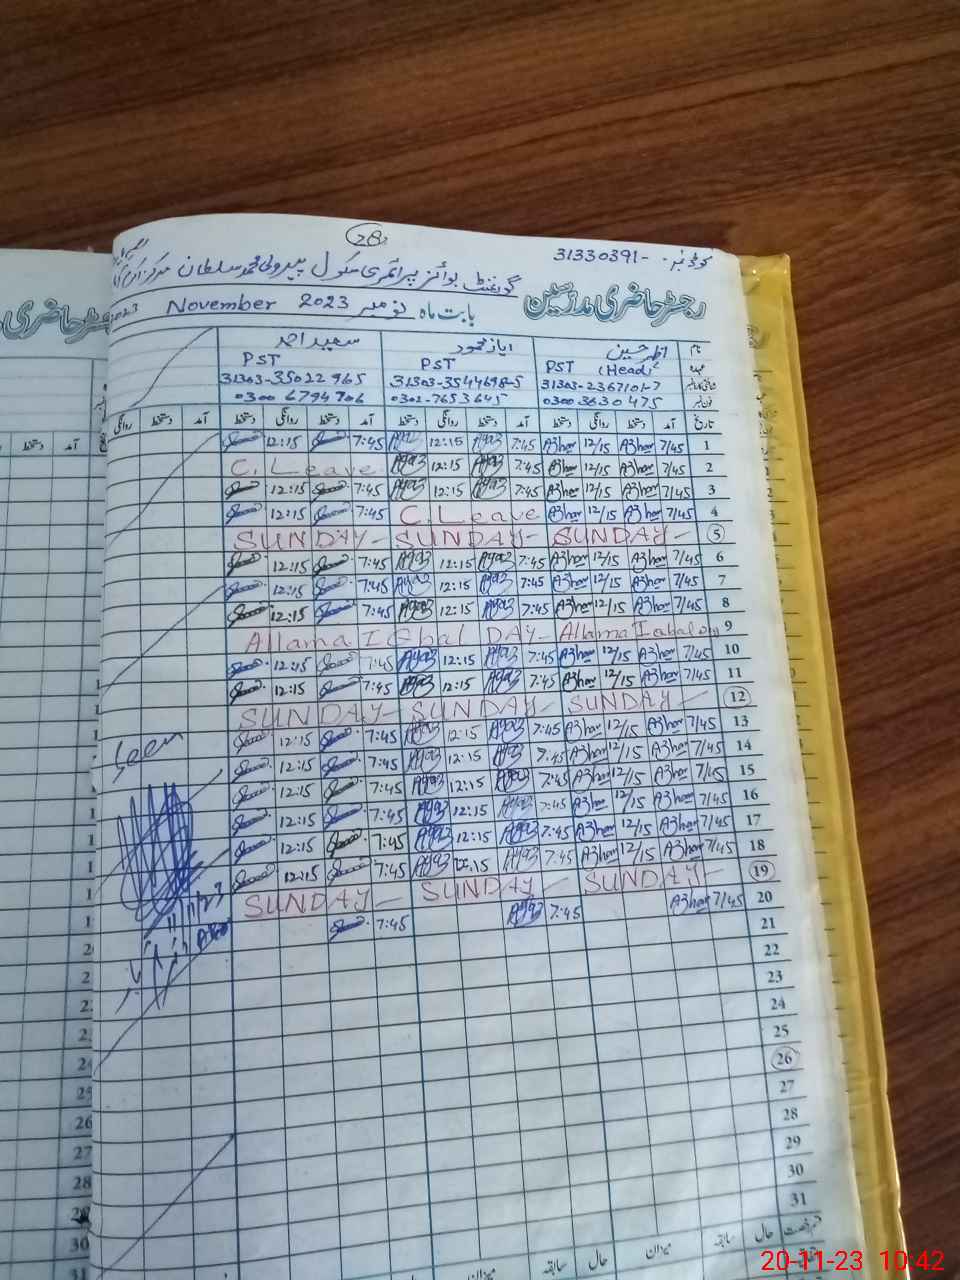 28
کوڈ نمبر 31330391-
گورنمنٹ بوائز پرائمری سکول پیرولی محمد سلطان مرکز
رجسٹر حاضری مدرسین بابت ماہ نومبر November 2023
نام اظہر حسین ایاز محمود سعید احمد
عہدہ PST (Head) PST PST
31303-2367101-7 31303-3544698-5 31303-35022965
0300 3630475 0302-7653645 0300 6794706
تاریخ آمد دستخط روانگی دستخط آمد دستخط روانگی دستخط آمد دستخط روانگی دستخط آمد دستخط روانگی
1 7/45 Azhar 12/15 Azhar 7:45 Ayaz 12:15 Ayaz 7:45 12:15
2 7/45 Azhar 12/15 Azhar 7:45 Ayaz 12:15 Ayaz C. Leave
3 7/45 Azhar 12/15 Azhar 7:45 Ayaz 12:15 Ayaz 7:45 12:15
4 7/45 Azhar 12/15 Azhar C. Leave 7:45 12:15
5 SUNDAY SUNDAY SUNDAY
6 7/45 Azhar 12/15 Azhar 7:45 Ayaz 12:15 Ayaz 7:45 12:15
7 7/45 Azhar 12/15 Azhar 7:45 Ayaz 12:15 Ayaz 7:45 12:15
8 7/45 Azhar 12/15 Azhar 7:45 Ayaz 12:15 Ayaz 7:45 12:15
9 Allama IGbal DAY- Allama Iqbal Day
10 7/45 Azhar 12/15 Azhar 7:45 Ayaz 12:15 Ayaz 7:45 12:15
11 7/45 Azhar 12/15 Azhar 7:45 Ayaz 12:15 Ayaz 7:45 12:15
12 SUNDAY SUNDAY SUNDAY
13 7/45 Azhar 12/15 Azhar 7:45 Ayaz 12:15 Ayaz 7:45 12:15
14 7/45 Azhar 12/15 Azhar 7:45 Ayaz 12:15 Ayaz 7:45 12:15
Seen
15 7/45 Azhar 12/15 Azhar 7:45 Ayaz 12:15 Ayaz 7:45 12:15
16 7/45 Azhar 12/15 Azhar 7:45 Ayaz 12:15 Ayaz 7:45 12:15
17 7/45 Azhar 12/15 Azhar 7:45 Ayaz 12:15 Ayaz 7:45 12:15
18 7/45 Azhar 12/15 Azhar 7:45 Ayaz 12:15 Ayaz 7:45 12:15
19 SUNDAY SUNDAY SUNDAY
20 7/45 Azhar 7:45 Ayaz 7:45
21
22
23
24
25
26
27
28
29
30
31
حال سابقہ میزان حال سابقہ میزان
20-11-23 10:42